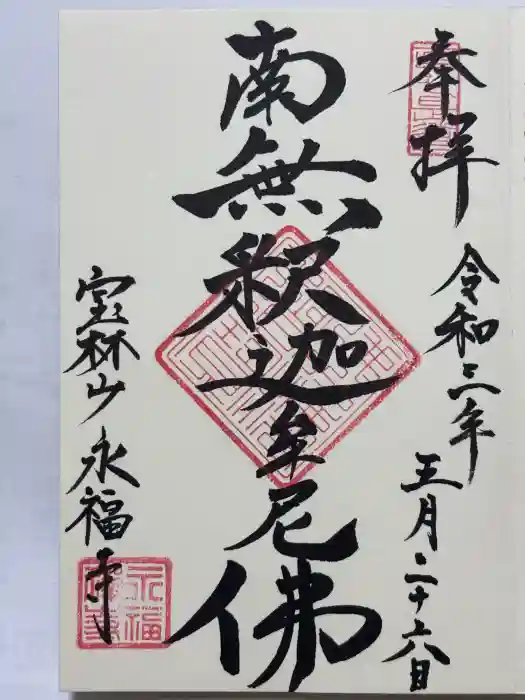 奉拝 令和三年 五月二十六日
南無釈迦牟尼佛
宝林山 永福寺